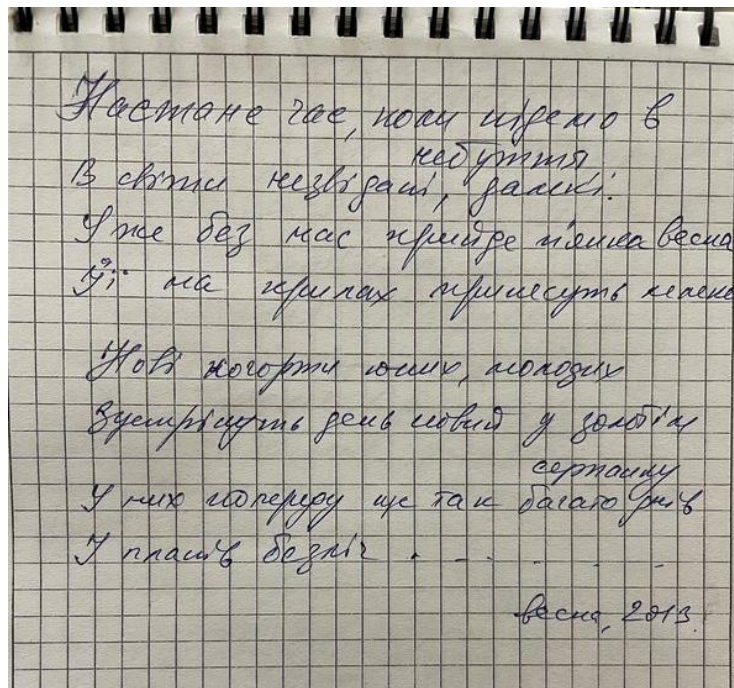 Настане час, коли підемо в
небуття
В світи незвідані, далекі.
Уже без нас прийде п'янка весна
Її на крилах принесуть лелеки
Нові когорти юних, молодих
Зустрінуть день новий у золотім
серпанку
У них попереду ще так багато днів
І планів безліч . - - . . -
весна, 2013